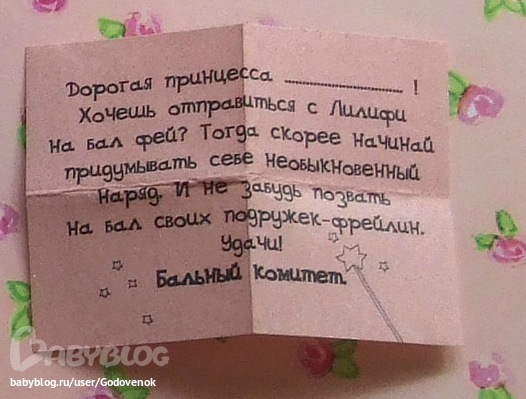 Дорогая принцесса ........................ !
Хочешь отправиться с Лилифи
На бал фей? Тогда скорее начинай
придумывать себе необыкновенный
Наряд. И не забудь позвать
На бал своих подружек-фрейлин.
Удачи!
Бальный комитет.
BABYBLOG
babyblog.ru/user/Godovenok